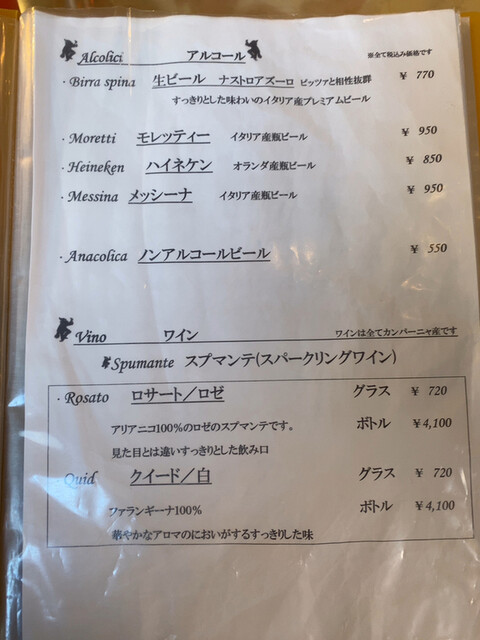 Alcolici アルコール ※全て税込み価格です
・Birra spina 生ビール ナストロアズーロ ピッツァと相性抜群 ￥ 770
すっきりとした味わいのイタリア産プレミアムビール
・Moretti モレッティー イタリア産瓶ビール ￥ 950
・Heineken ハイネケン オランダ産瓶ビール ￥ 850
・Messina メッシーナ イタリア産瓶ビール ￥ 950
・Anacolica ノンアルコールビール ￥ 550
Vino ワイン ワインは全てカンパーニャ産です
Spumante スプマンテ(スパークリングワイン)
・Rosato ロサート／ロゼ グラス ￥ 720
アリアニコ100%のロゼのスプマンテです。 ボトル ￥4,100
見た目とは違いすっきりとした飲み口
・Quid クイード／白 グラス ￥ 720
ファランギーナ100% ボトル ￥4,100
華やかなアロマのにおいがするすっきりした味